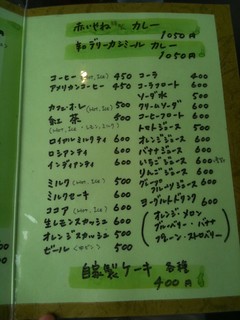 赤いせね カレー
1050円
カレー
1050円
コーヒー (Hot, Ice) 450
アメリカンコーヒー 450
カフェ・オ・レ (Hot, Ice) 500
紅茶 400
(Hot, Ice・レモン, ミルク)
ロイヤルミルクティ 600
ロシアンティ 600
インディアンティ 600
ミルク (Hot, Ice) 500
ミルクセーキ 600
ココア (Hot, Ice) 600
生レモンスカッシュ 600
オレンジスカッシュ 500
ビール 500
コーラ 400
コーラフロート 600
ソーダ水 500
クリームソーダ 600
コーヒーフロート 600
トマトジュース 500
オレンジジュース 500
バナナジュース 600
いちごジュース 600
りんごジュース 600
グレープフルーツジュース 600
ヨーグルトドリンク 600
(オレンジ・メロン
ブルーベリー・バナナ
プレーン・ストロベリー)
自家製ケーキ 各種
400円